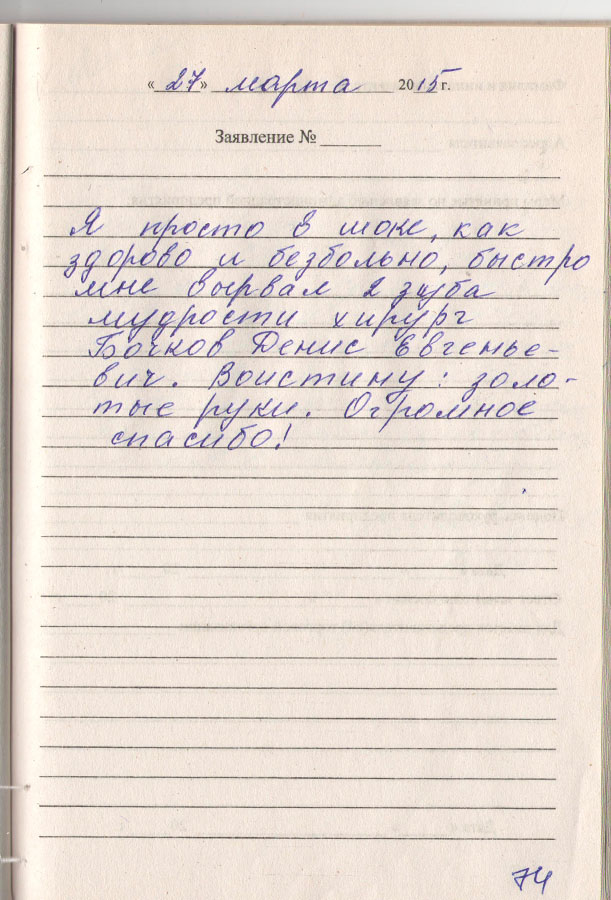 «27» марта 2015 г.
Заявление №
Я просто в шоке, как
здорово и безбольно, быстро
мне вырвал 2 зуба
мудрости хирург
Бочков Денис Евгенье-
вич. Воистину: золо-
тые руки. Огромное
спасибо!
74